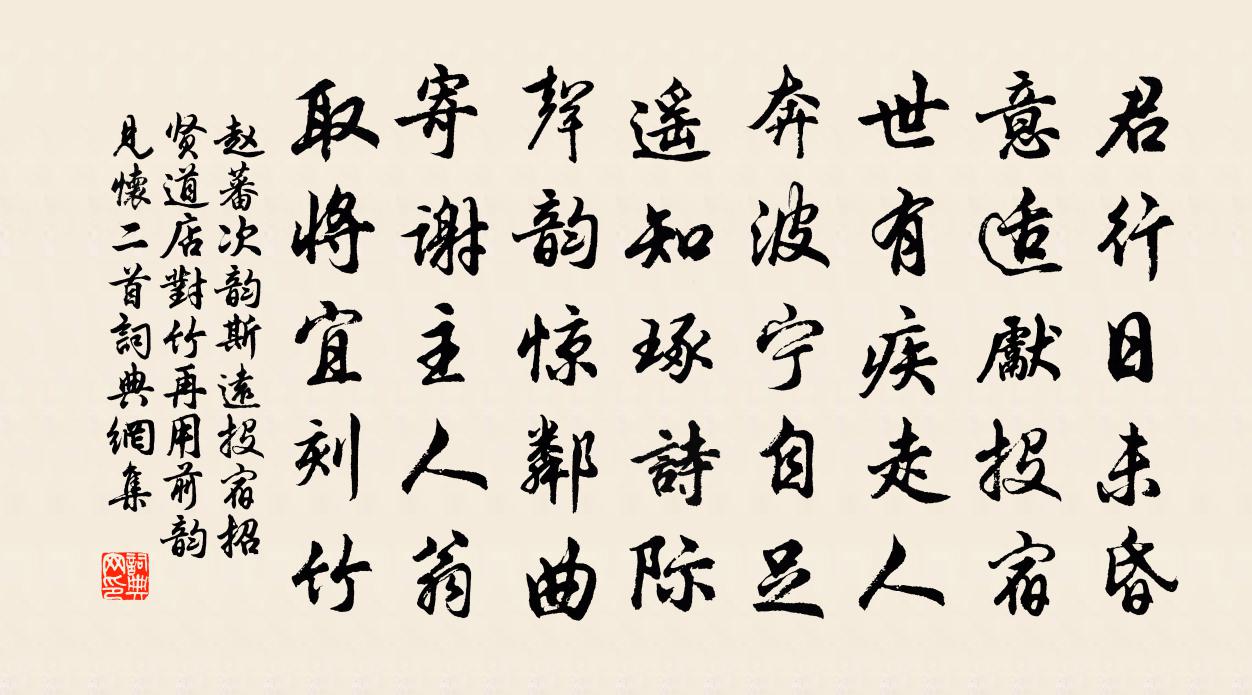 君行日未昏
意适獻投宿
世有疾走人
奔波宁自足
遥知琢詩际
聲韵惊鄰曲
寄谢主人翁
取將宜刻竹
赵蕃次韵斯遠投宿招
贤道店對竹再用前韵
見懷二首詞典網集
詞典
网印